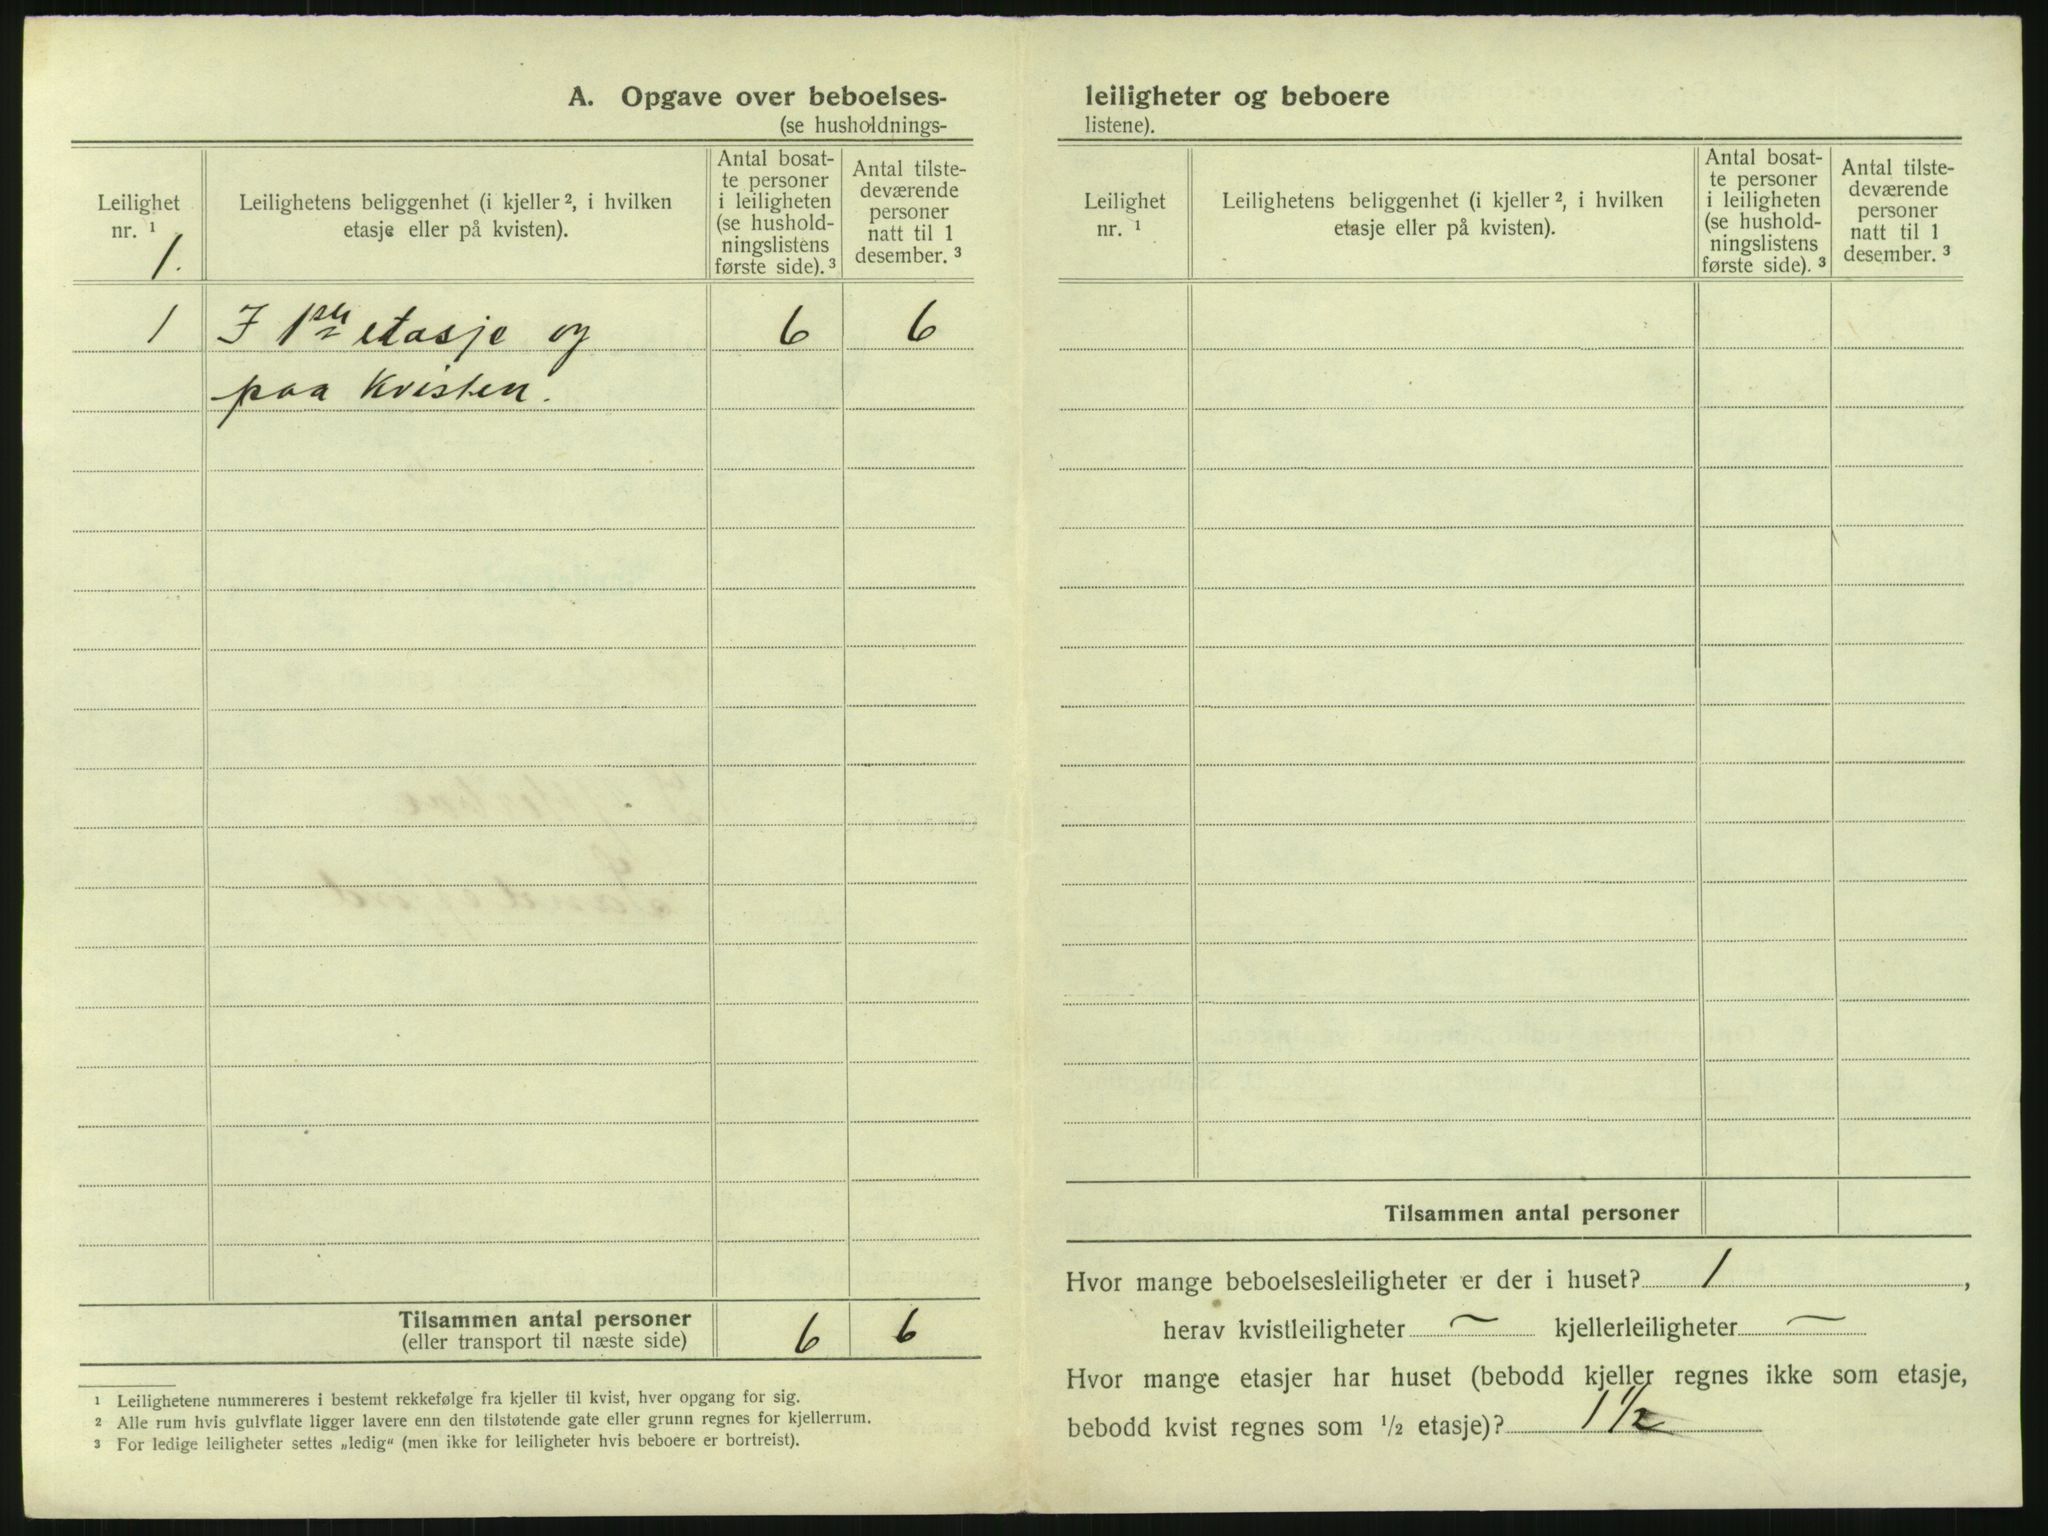 A. Opgave over beboelses-
(se husholdnings-
Leilighet
nr. ¹
1.
Leilighetens beliggenhet (i kjeller ², i hvilken
etasje eller på kvisten).
Antal bosat-
te personer
i leiligheten
(se hushold-
ningslistens
første side). ³
Antal tilste-
deværende
personer
natt til 1
desember. ³
1 I 1ste etasje og 6 6
paa Kvisten.
Tilsammen antal personer
(eller transport til næste side) 6 6
¹ Leilighetene nummereres i bestemt rekkefølge fra kjeller til kvist, hver opgang for sig.
² Alle rum hvis gulvflate ligger lavere enn den tilstøtende gate eller grunn regnes for kjellerrum.
³ For ledige leiligheter settes „ledig“ (men ikke for leiligheter hvis beboere er bortreist).
leiligheter og beboere
listene).
Leilighet
nr. ¹
Leilighetens beliggenhet (i kjeller ², i hvilken
etasje eller på kvisten).
Antal bosat-
te personer
i leiligheten
(se hushold-
ningslistens
første side). ³
Antal tilste-
deværende
personer
natt til 1
desember. ³
Tilsammen antal personer
Hvor mange beboelsesleiligheter er der i huset? 1 ,
herav kvistleiligheter — kjellerleiligheter —
Hvor mange etasjer har huset (bebodd kjeller regnes ikke som etasje,
bebodd kvist regnes som ½ etasje)? 1 ½